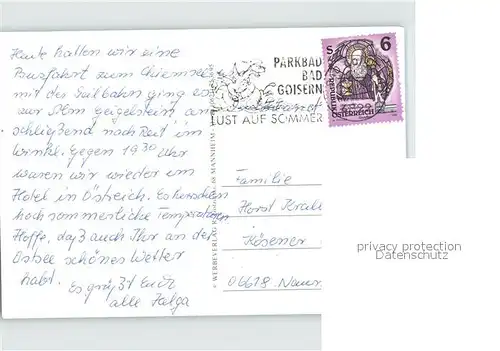 Heute hatten wir eine
Busfahrt zum Chiemsee
mit der Seilbahn ging es
zur geigelstein, an-
schließend nach Reit im
Winkl. Gegen 19 30 Uhr
waren wir wieder im
Hotel in Östreich. Es herschen
hoch sommerliche Temperaturen
Hoffe, daß auch Ihr an der
Ostsee schönes Wetter
habt.
Es grüßt Euch
alle Helga
PARKBAD
BAD
GOISERN
LUST AUF SOMMER
S 6
ÖSTERREICH
Familie
Horst
Kösener
06618 Naum
privacy protection
Datenschutz